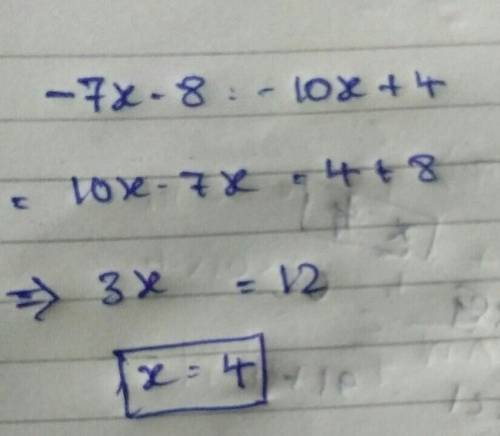 -7x - 8 = -10x + 4
= 10x - 7x = 4 + 8
⇒ 3x = 12
x = 4